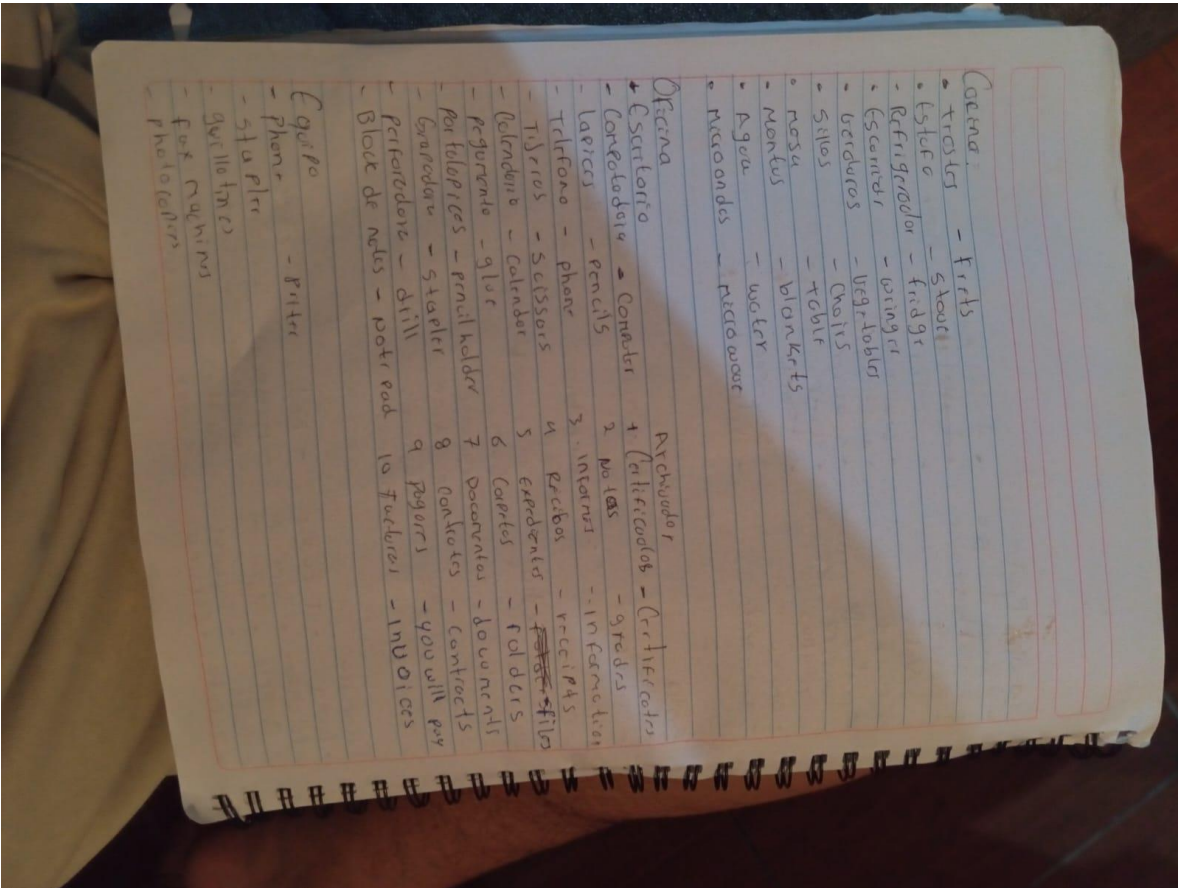 Cocina:
• trastes - frets
• Estufa - stove
- Refrigerador - fridge
• Escurridor - wringer
• verduras - vegetables
• sillas - chairs
• mesa - table
• Mantas - blankets
• Agua - water
• Microondas - microwave
Oficina
+ Escritorio
- Computadora - Computer
- Lapices - pencils
- Telefono - phone
- Tijeras - scissors
- Calendario - calendar
- pegamento - glue
- Portalapices - pencil holder
- Grapadora - stapler
- perforadora - drill
- Block de notas - Note pad
Archivador
+ Certificados - Certificates
2 Notas - grades
3. informes - information
4 Recibos - receipts
5 expedientes - files
6 Carpetas - folders
7 Documentos - documents
8 contratos - contracts
9 pagares - you will pay
10 facturas - invoices
Equipo
- phone - priter
- stapler
- guillotines
- fax machines
- photocopies